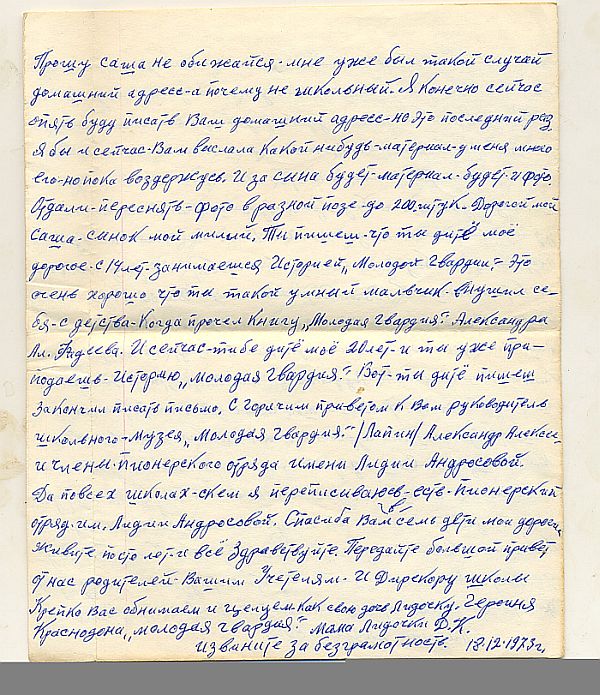 Прошу Саша не обижайся. мне уже был такой случай
домашний адресс-а почему не школьный. Я конечно сейчас
опять буду писать Ваш домашний адресс-но это последний раз
я бы и сейчас-Вам выслала какой нибудь-материал-у меня много
его-но пока воздержусь. И за сина будет-материал-будет-и фото.
Отдали-переснять-фото в разной позе-до 200 штук. Дорогой мой
Саша-синок мой милий. Ти пишеш-что ти дитё моё
дорогое-с 14 лет-занимаешся Историей „Молодой Гвардии". Это
очень хорошо что ти такой умный мальчик-внушил се-
бя-с детства-Когда прочел Книгу „Молодая Гвардия". Александра
Ал. Фадеева. И сейчас-тибе дитё моё 20 лет-и ти уже при-
подаешь-Историю „Молодая Гвардия". Вот-ти дитё пишеш
закончил писать письмо. С горячим приветом к Вам руководитель
школьного-музея „Молодая Гвардия". /Лапин/ Александр Алексе
и члены-пионерского отряда имени Лидии Андросовой.
Да по всех школах-скем я переписиваюсь-есть-Пионерский
отряд-им. Лидии Андросовой. Спасиба Вам всем дети мои дороги
живите по сто лет-и всё Здравствуйте. Передайте большой привет
от нас родителей-Вашим Учетелям-И Дирекору школы
Крепко Вас обнимаем и цулуем как свою дочь Лидочку. Героиня
Краснодона „Молодая Гвардия". Мама Лидочки Д.К.
извините за безграмотность. 18.12.1973г,